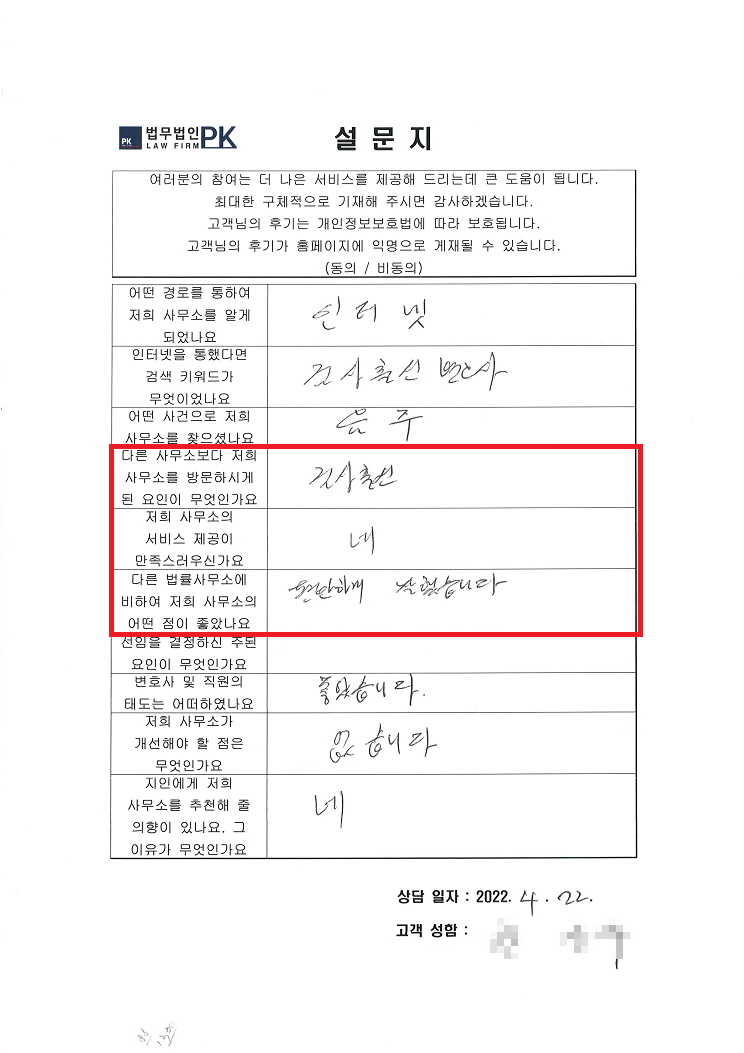 PK 법무법인 PK
LAW FIRM
설 문 지
여러분의 참여는 더 나은 서비스를 제공해 드리는데 큰 도움이 됩니다.
최대한 구체적으로 기재해 주시면 감사하겠습니다.
고객님의 후기는 개인정보보호법에 따라 보호됩니다.
고객님의 후기가 홈페이지에 익명으로 게재될 수 있습니다.
(동의 / 비동의)
어떤 경로를 통하여
저희 사무소를 알게
되었나요
인터넷
인터넷을 통했다면
검색 키워드가
무엇이었나요
검사출신 변호사
어떤 사건으로 저희
사무소를 찾으셨나요
음주
다른 사무소보다 저희
사무소를 방문하시게
된 요인이 무엇인가요
검사출신
저희 사무소의
서비스 제공이
만족스러우신가요
네
다른 법률사무소에
비하여 저희 사무소의
어떤 점이 좋았나요
원만하게 잘했습니다
선임을 결정하신 주된
요인이 무엇인가요
변호사 및 직원의
태도는 어떠하였나요
좋았습니다.
저희 사무소가
개선해야 할 점은
무엇인가요
없습니다
지인에게 저희
사무소를 추천해 줄
의향이 있나요. 그
이유가 무엇인가요
네
상담 일자 : 2022. 4. 22.
고객 성함 :